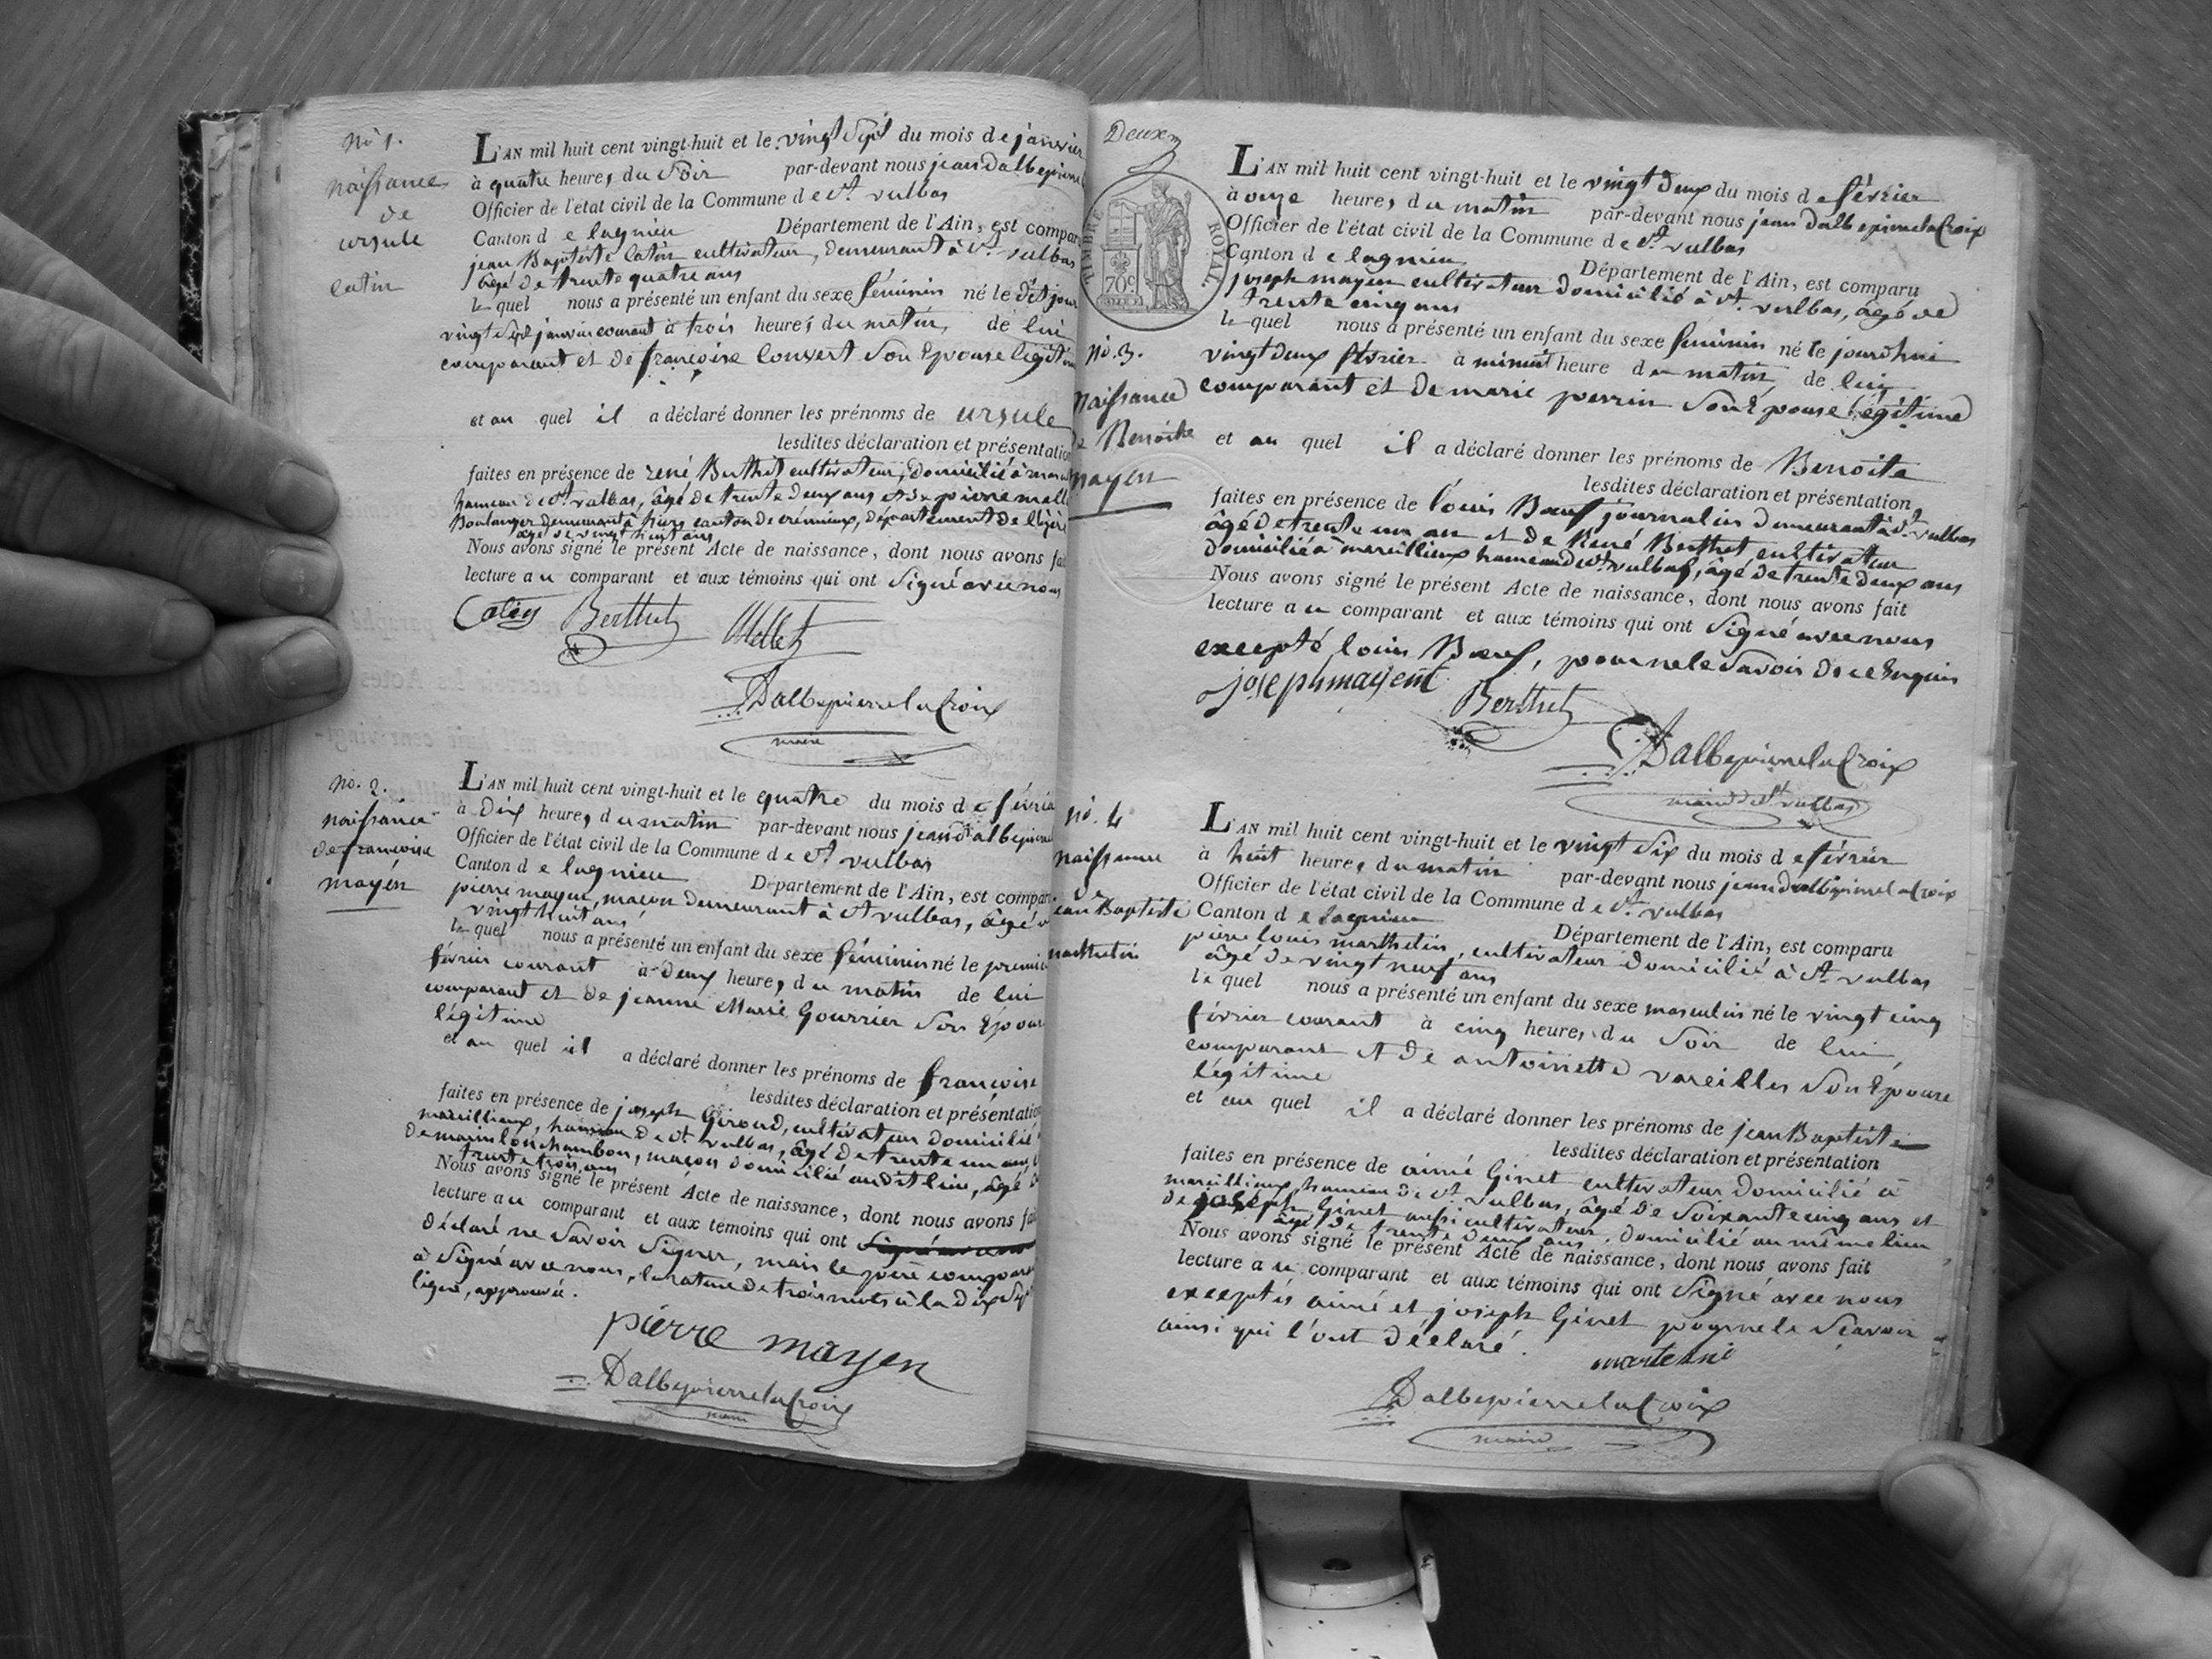 No 1.
naissance
de
ursule
catin
L'AN mil huit cent vingt-huit et le vingt sept du mois de janvier
à quatre heures du soir par-devant nous jean dalbepierre
Officier de l'état civil de la Commune de St. vulbas
Canton de lagnieu Département de l'Ain, est compar
jean Baptiste catin cultivateur, demeurant à St. vulbas
âgé de trente quatre ans
lequel nous a présenté un enfant du sexe féminin né le dit jour
vingt sept janvier courant à trois heures du matin, de lui
comparant et de françoise Convert son Epouse légitim
et au quel il a déclaré donner les prénoms de ursule
lesdites déclaration et présentation
faites en présence de rené Berthet cultivateur, domicilié à
hameau de St. vulbas, âgé de trente deux ans et de pierre mall
Boulanger demeurant à hiers canton de crémieux, département de l'isère
âgé de vingt huit ans
Nous avons signé le présent Acte de naissance, dont nous avons fai
lecture au comparant et aux témoins qui ont signé avec nous
Catin Berthet Mellet
DalbepierrelaCroix
maire
No. 2.
naissance
de françoise
mayen
L'AN mil huit cent vingt-huit et le quatre du mois de févrie
à dix heures du matin par-devant nous jean dalbepierre
Officier de l'état civil de la Commune de St vulbas
Canton de lagnieu Département de l'Ain, est compar
pierre mayen, maçon demeurant à St vulbas, âgé d
vingt huit ans
lequel nous a présenté un enfant du sexe féminin né le premie
février courant à deux heures du matin de lui
comparant et de jeanne Marie Gourrier son Epous
légitime
et au quel il a déclaré donner les prénoms de françoise
lesdites déclaration et présentation
faites en présence de joseph Giroud, cultivateur domicilié
marcillieux, hameau de St. vulbas, âgé de trente un ans,
chambon, maçon domicilié au dit lieu, âgé d
trente trois ans
Nous avons signé le présent Acte de naissance, dont nous avons fai
lecture au comparant et aux témoins qui ont signé avec nous
déclaré ne savoir signer, mais le père comparan
à signé avec nous, la rature de trois mots à la dix sept
ligne, approuvée.
pierre mayen
DalbepierrelaCroix
maire
Deux
TIMBRE ROYAL.
70c
No. 3.
naissance
de Benoite
mayen
L'AN mil huit cent vingt-huit et le vingt deux du mois de février
à onze heures du matin par-devant nous jean dalbepierrelaCroix
Officier de l'état civil de la Commune de St. vulbas
Canton de lagnieu Département de l'Ain, est comparu
joseph mayen cultivateur domicilié à St. vulbas, âgé de
trente cinq ans
lequel nous a présenté un enfant du sexe féminin né le jourdhui
vingt deux février à minuit heure du matin, de lui
comparant et de marie perrin son Epouse légitime
et au quel il a déclaré donner les prénoms de Benoite
lesdites déclaration et présentation
faites en présence de louis Bœuf journalier demeurant à St. vulbas
âgé de trente un an et de René Berthet cultivateur
domicilié à marcillieux hameau de St. vulbas, âgé de trente deux ans
Nous avons signé le présent Acte de naissance, dont nous avons fait
lecture au comparant et aux témoins qui ont signé avec nous
excepté louis Bœuf, pour ne le savoir de ce Enquis
joseph mayent
Berthet
DalbepierrelaCroix
maire de St vulbas
No. 4
naissance
de
jean Baptiste
marthelin
L'AN mil huit cent vingt-huit et le vingt six du mois de février
à huit heures du matin par-devant nous jean dalbepierrelaCroix
Officier de l'état civil de la Commune de St. vulbas
Canton de lagnieu Département de l'Ain, est comparu
pierre louis marthelin, cultivateur domicilié à St. vulbas
âgé de vingt neuf ans
lequel nous a présenté un enfant du sexe masculin né le vingt cinq
février courant à cinq heures du soir de lui,
comparant et de antoinette vareilles son Epouse
légitime
et au quel il a déclaré donner les prénoms de jean Baptiste
lesdites déclaration et présentation
faites en présence de aimé Ginet cultivateur domicilié à
marcillieux, hameau de St vulbas, âgé de soixante cinq ans et
de joseph Ginet aussi cultivateur, domicilié au même lieu
âgé de trente deux ans
Nous avons signé le présent Acte de naissance, dont nous avons fait
lecture au comparant et aux témoins qui ont signé avec nous
exceptés aimé et joseph Ginet pour ne le sçavoir
ainsi qui l'ont déclaré.
DalbepierrelaCroix
maire